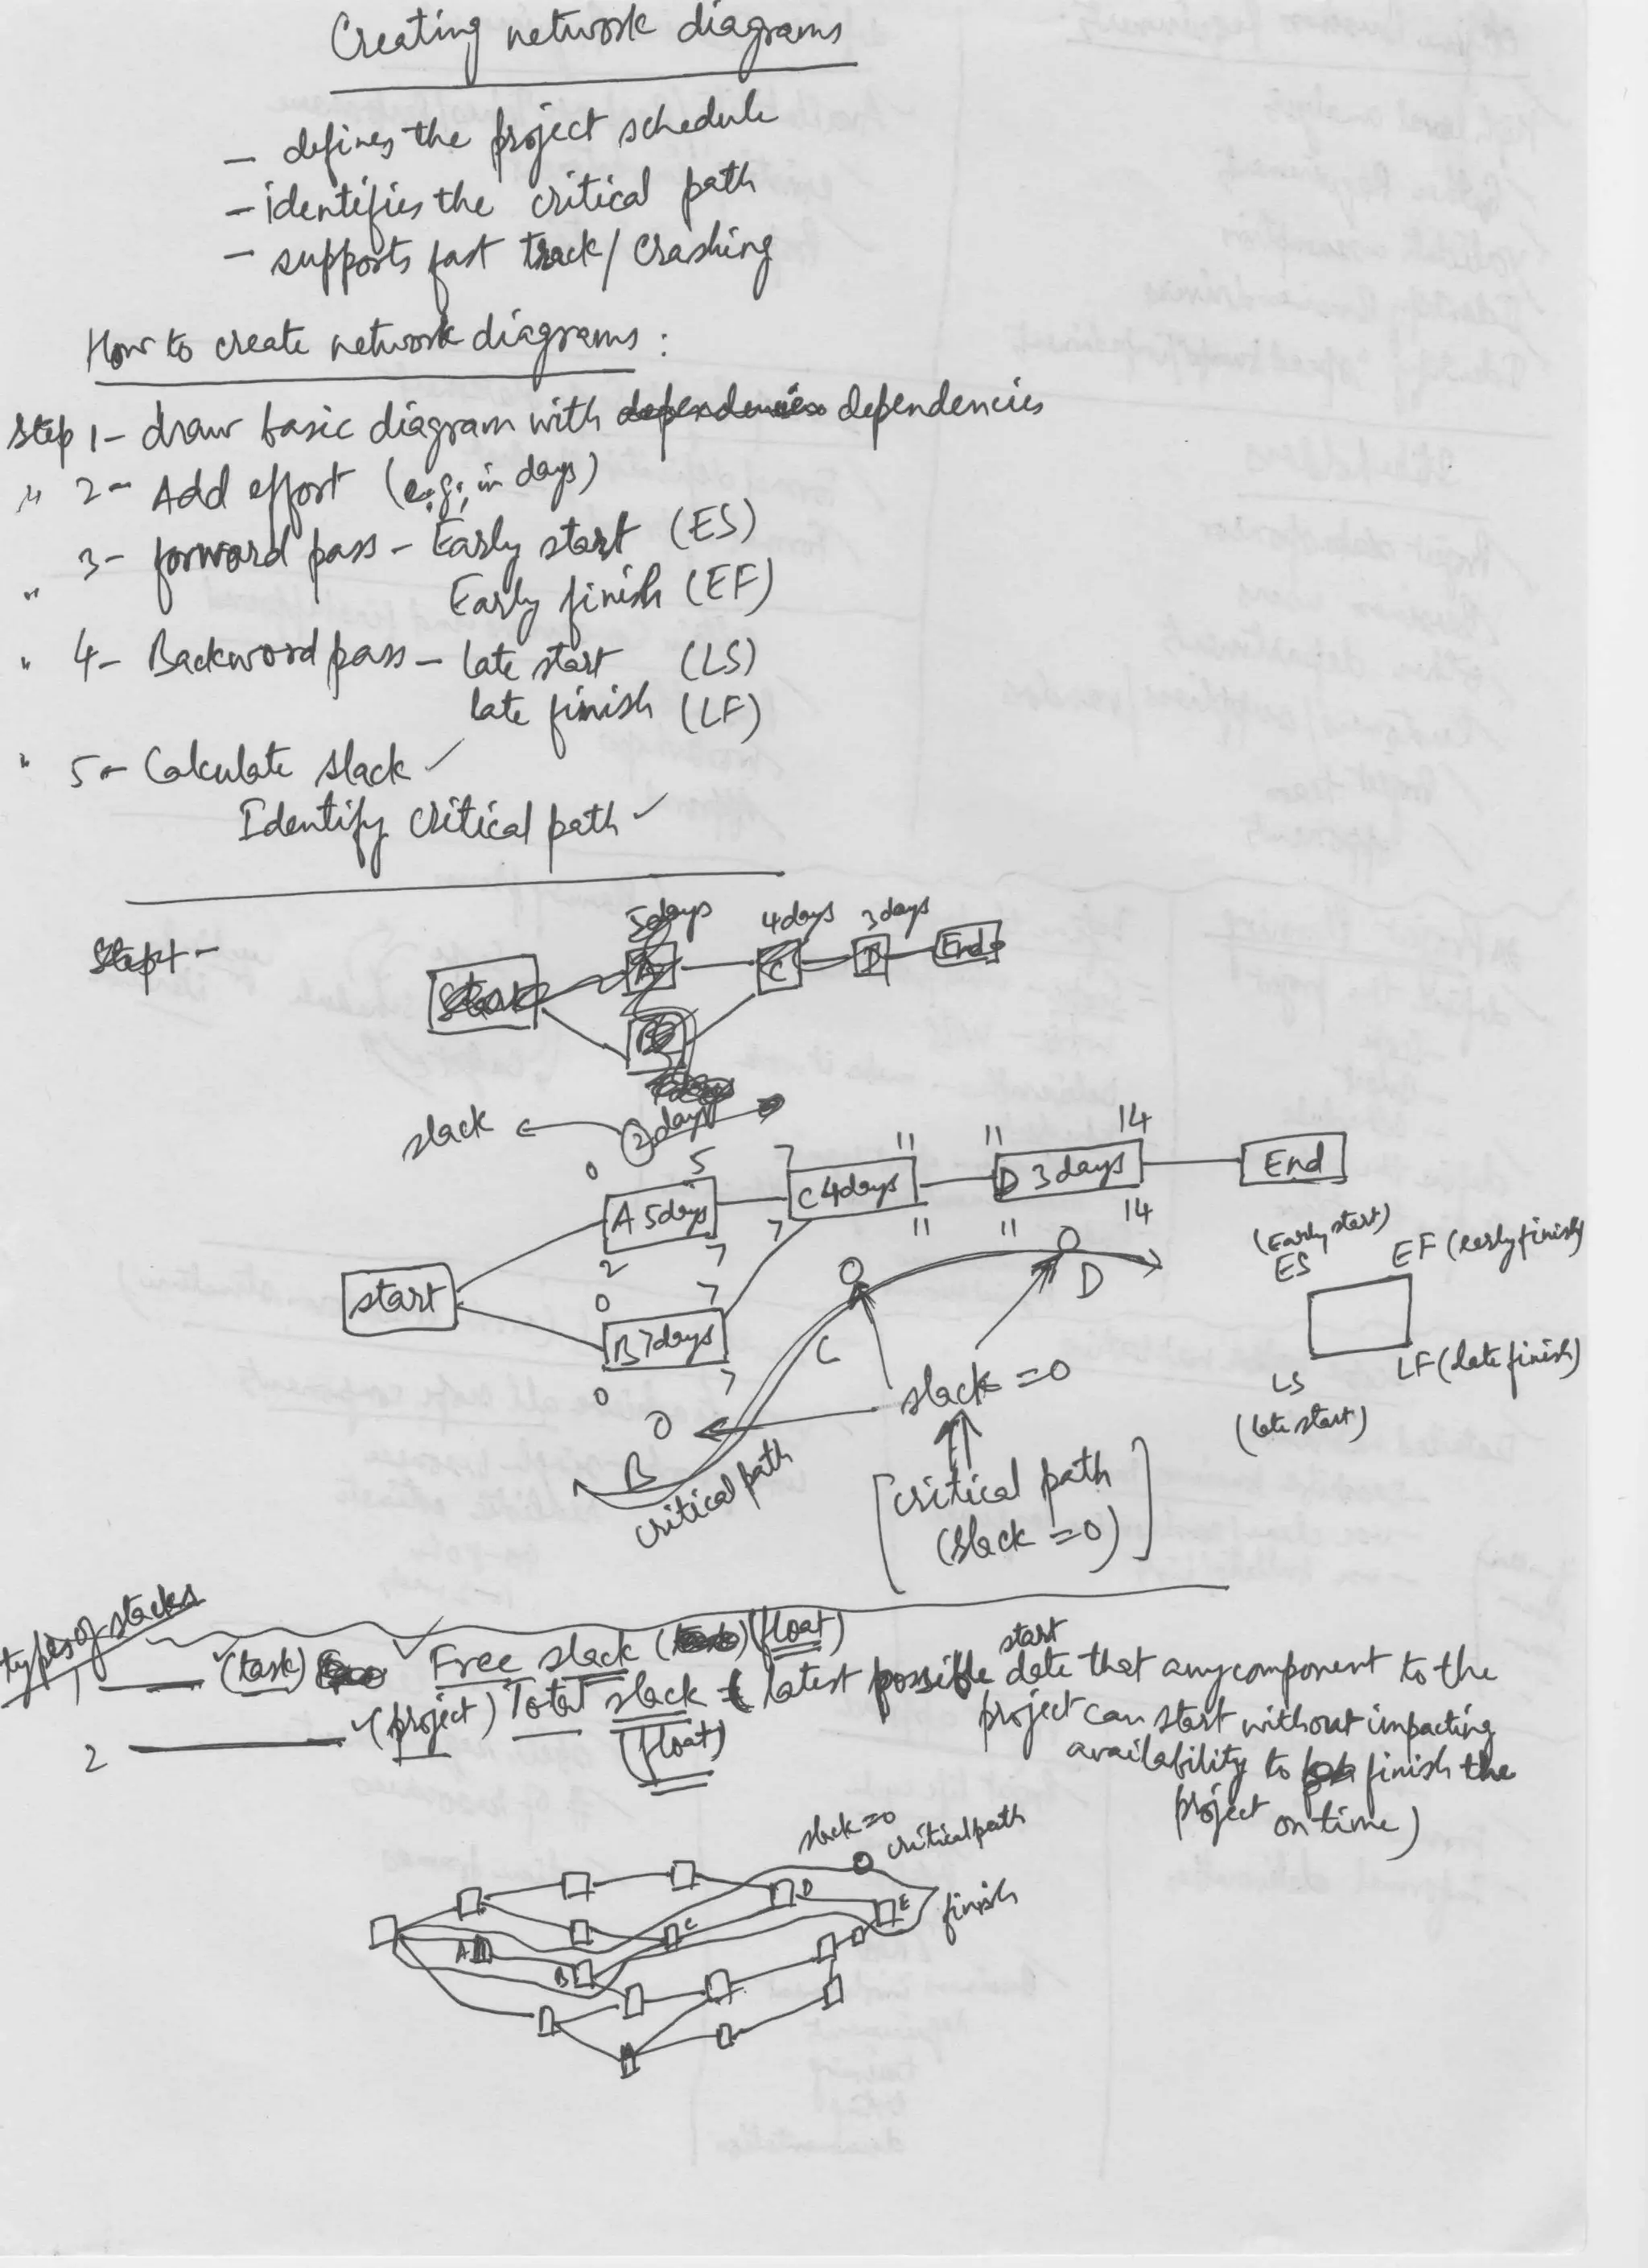 Creating network diagrams
- defines the project schedule
- identifies the critical path
- supports fast track / crashing
How to create network diagrams :
Step 1 - draw basic diagram with dependencies dependencies
" 2 - Add effort (e.g; in days)
" 3 - forward pass - Early start (ES)
Early finish (EF)
" 4 - Backword pass - late start (LS)
late finish (LF)
" 5 - Calculate slack ✓
Identify critical path ✓
Step 1 -
5 days 4 days 3 days
Start A C D End
B
slack ← 2 days
0 5 7 11 11 14
A 5 days C 4 days D 3 days End
2 7 7 11 11 14
start
0 7
B 7 days
0 7
0 0
0
B C D
critical path
slack = 0
[critical path
(slack = 0)]
(Early start)
ES EF (early finish)
LS LF (late finish)
(late start)
types of slacks
1 (task) Free slack (float)
2 (project) Total slack (latest possible start date that any component to the
(float) project can start without impacting
availability to finish the
project on time)
slack = 0
critical path
A B C D E
finish